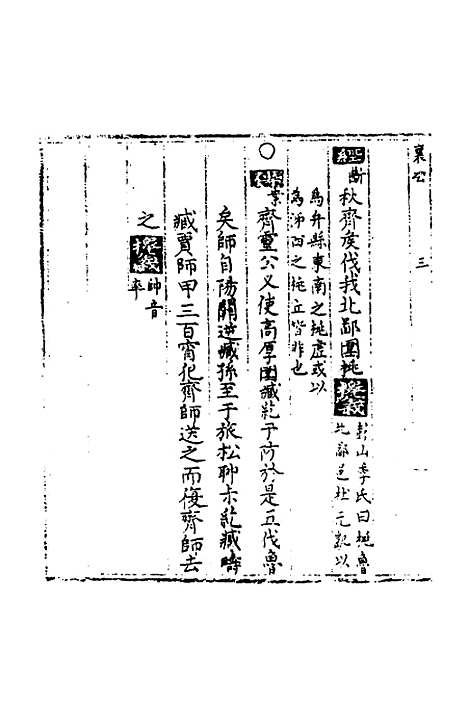 襄公 三
經 斷 秋齊侯伐我北鄙圍桃 彭山季氏曰桃魯
北鄙邑杜元凱以
為弁縣東南之桃虛或以
為沛國之桃丘皆非也
案 齊靈公又使高厚圍臧紇于防於是五伐魯
矣師自陽關逆臧孫至于旅松聊尗紇臧疇
臧賈師甲三百宵犯齊師送之而復齊師去
之 帥音
率